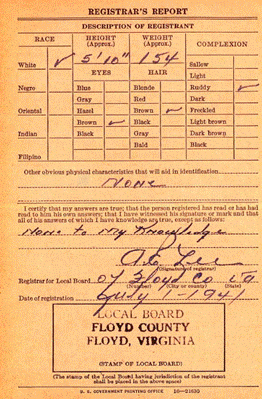 REGISTRAR'S REPORT
DESCRIPTION OF REGISTRANT
RACE HEIGHT (Approx.) WEIGHT (Approx.) COMPLEXION
White ✓ 5' 10" 154 Sallow
EYES HAIR Light
Negro Blue Blonde Ruddy ✓
Gray Red Dark
Oriental Hazel Brown ✓ Freckled
Brown ✓ Black Light brown
Indian Black Gray Dark brown
Bald Black
Filipino
Other obvious physical characteristics that will aid in identification
None
I certify that my answers are true; that the person registered has read or has had
read to him his own answers; that I have witnessed his signature or mark and that
all of his answers of which I have knowledge are true, except as follows:
None to my Knowledge
Lee
(Signature of registrar)
Registrar for Local Board 07 Floyd Co Va
(Number) (City or county) (State)
Date of registration July 1-1941
LOCAL BOARD
FLOYD COUNTY
FLOYD, VIRGINIA
(STAMP OF LOCAL BOARD)
(The stamp of the Local Board having jurisdiction of the registrant
shall be placed in the above space)
U. S. GOVERNMENT PRINTING OFFICE 16—21630